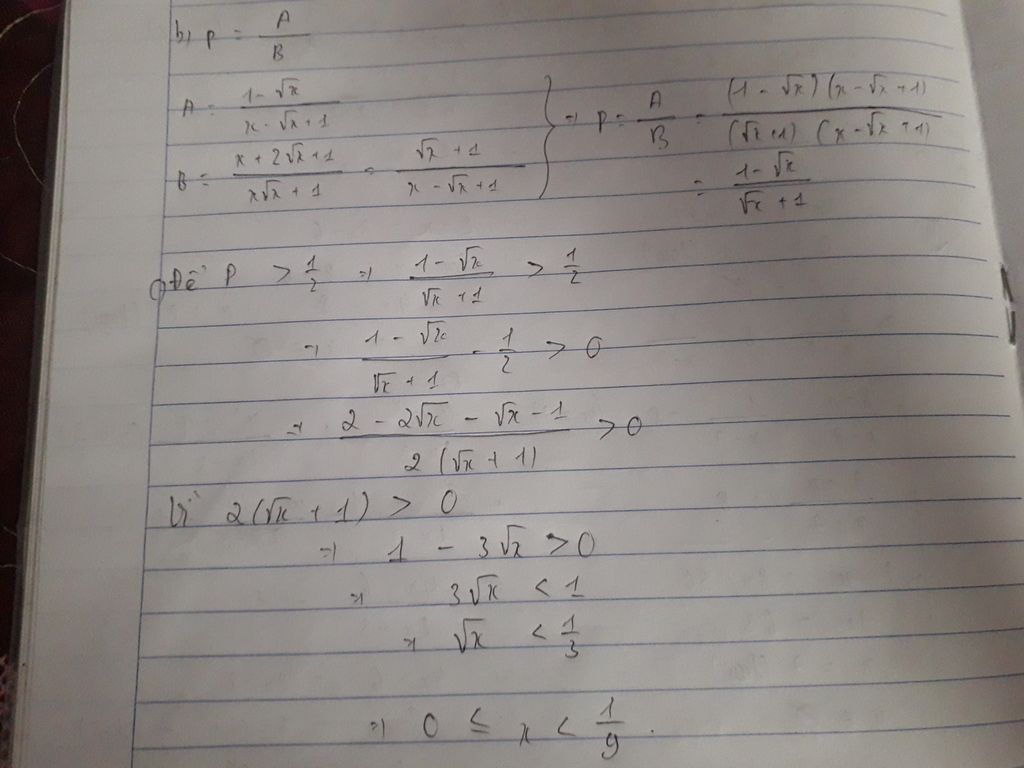 b, P = A/B
A = (1 - √x)/(x - √x + 1)
B = (x + 2√x + 1)/(x√x + 1) = (√x + 1)/(x - √x + 1)
} ⇒ P = A/B = ((1 - √x)(x - √x + 1))/((√x + 1)(x - √x + 1))
= (1 - √x)/(√x + 1)
c) Để P > 1/2 ⇒ (1 - √x)/(√x + 1) > 1/2
⇒ (1 - √x)/(√x + 1) - 1/2 > 0
⇒ (2 - 2√x - √x - 1)/(2(√x + 1)) > 0
Vì 2(√x + 1) > 0
⇒ 1 - 3√x > 0
⇒ 3√x < 1
⇒ √x < 1/3
⇒ 0 ≤ x < 1/9.